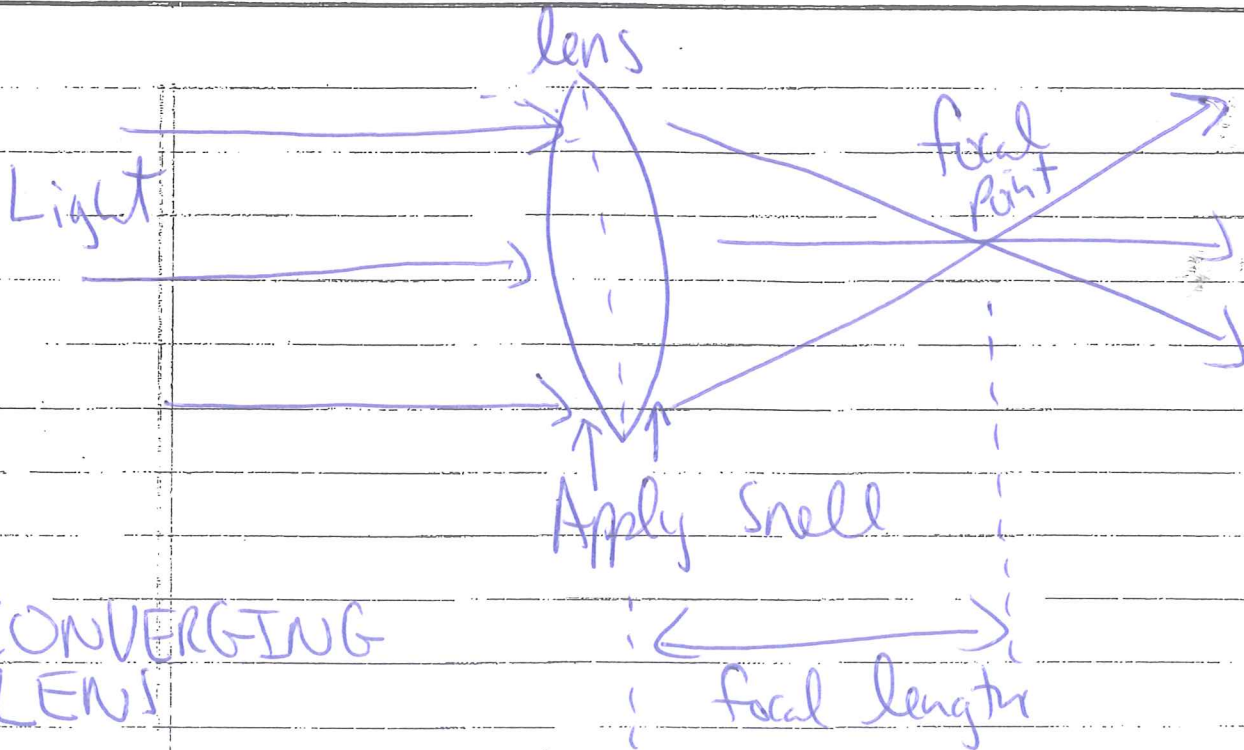 lens
Light
focal
point
Apply Snell
CONVERGING
LENS
focal length